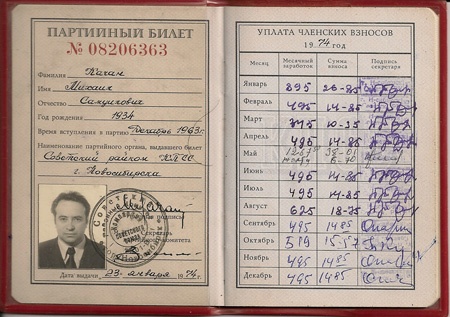 ПАРТИЙНЫЙ БИЛЕТ
№ 08206363
Фамилия Качан
Имя Михаил
Отчество Самуилович
Год рождения 1934
Время вступления в партию Декабрь 1963 г.
Наименование партийного органа, выдавшего билет
Советский райком КПСС
г. Новосибирска
Дата выдачи 23 января 1974 г.
УПЛАТА ЧЛЕНСКИХ ВЗНОСОВ
1974 год
Месяц Месячный заработок Сумма взноса Подпись секретаря
Январь 895 26-85
Февраль 495 14-85
Март 345 10-35
Апрель 495 14-85
Май
Июнь 495 14-85
Июль 495 14-85
Август 625 18-75
Сентябрь 495 1485
Октябрь 519 15-57
Ноябрь 495 1485
Декабрь 495 1485